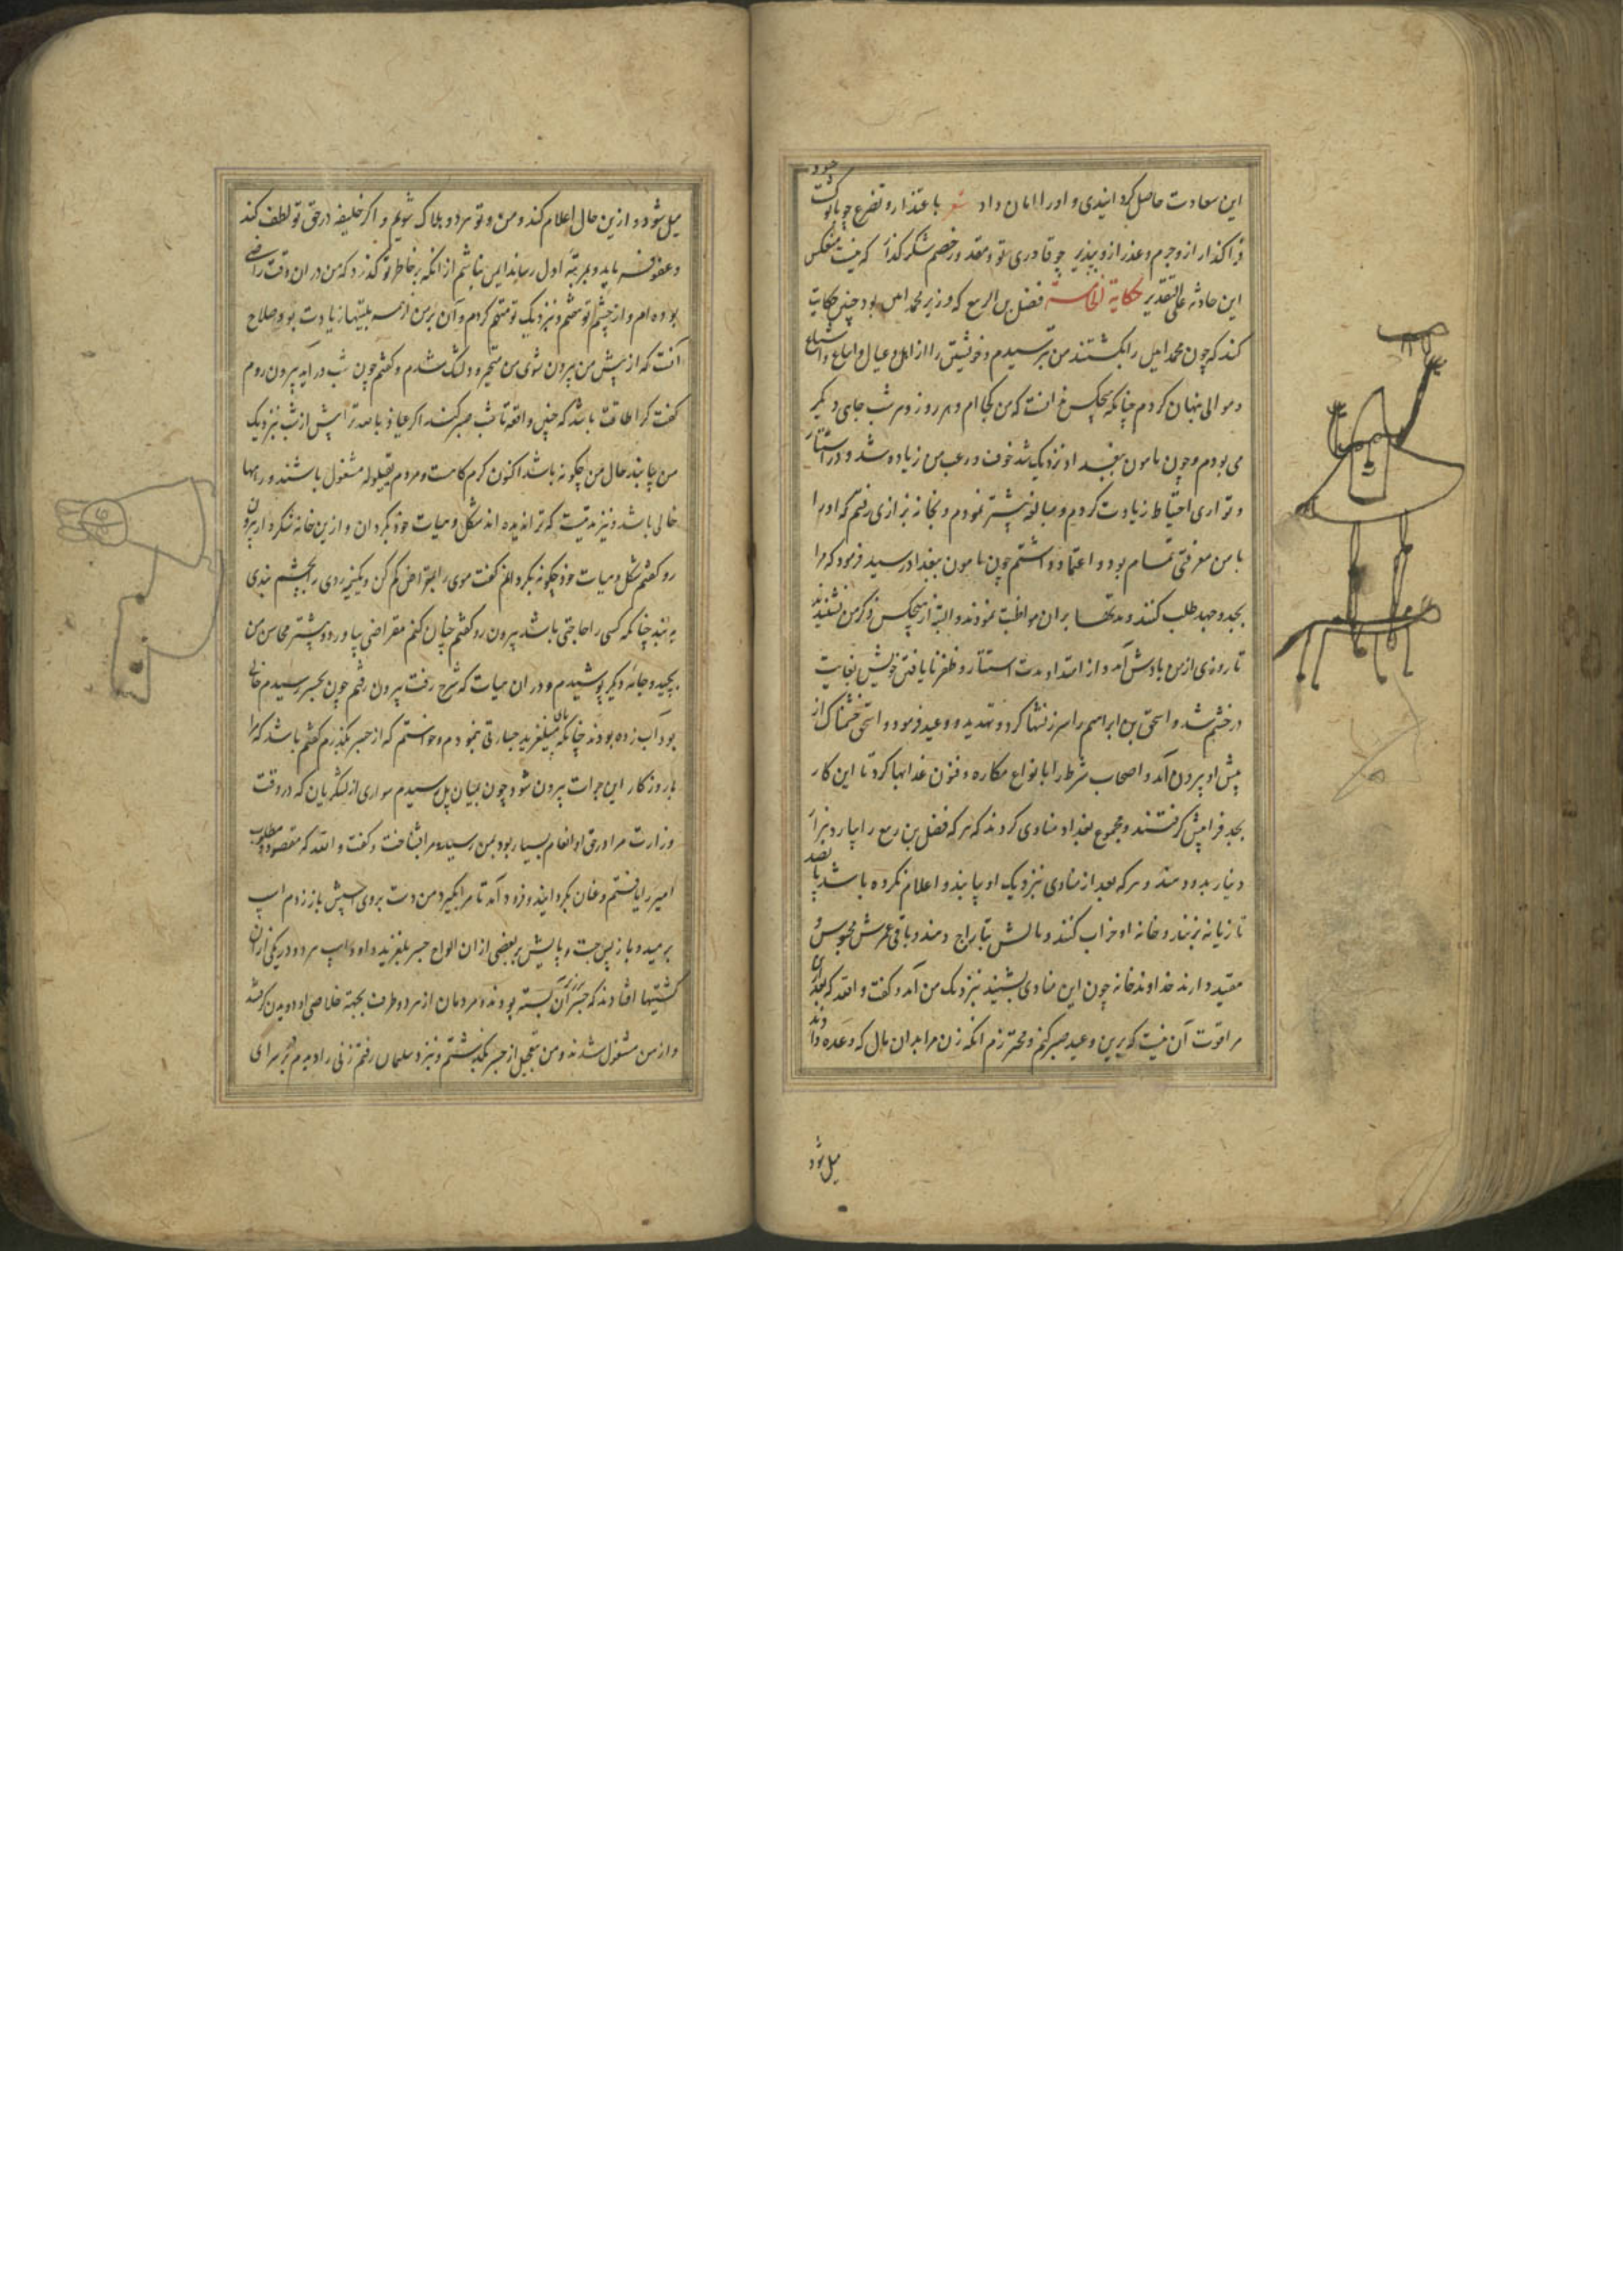 این سعادت حاصل کرد ایندی و اورا امان داد شعر باعتذار و تضرع چو با تو گشت
خود
واگذار از و جرم و عذر ازو بپذیر چو قادری تو و مقدور خصم شکر گذار که نیست منعکس
این حادثه علی التقدیر حکایة الخامسة فضل بن الربیع که وزیر محمد امین بود چنین حکایت
کند که چون محمد امین را بکشتند من بترسیدم و خویشتن را از اهل و عیال و اتباع و اشیاع
و موالی پنهان کردم چنانکه هیچکس ندانست که من کجا ام و هر روز و هر شب جای دیگر
می بودم و چون مامون ببغداد نزدیک شد خوف و رعب من زیاده شد و در استتار
و تواری احتیاط زیادت کردم و مبالغه بیشتر نمودم و بخانه بزازی رفتم که او را
با من معرفتی تمام بود و اعتماد داشتم چون مامون ببغداد رسید فرمود که مرا
بجد و جهد طلب کنند و مدتها بران مواظبت نمودند و البته از هیچکس ذکر من نشنیدند
تا روزی از من یادش آمد و از امتداد مدت استتار و ظفر نایافتن خویش بغایت
در خشم شد و اسحق بن ابراهیم را سرزنشها کرد و تهدید و وعید فرمود و اسحق خشمناک از
پیش او بیرون آمد و اصحاب شرط را بانواع مکاره و فنون عذابها کرد تا این کار
بجد فرا پیش گرفتند و مجموع بغداد منادی کردند که هر که فضل بن ربیع را بیارد هزار
دینار بدو دهند و هر که بعد از منادی نزدیک او یابند و اعلام نکرده باشد پانصد
تازیانه بزنند و خانه او خراب کنند و مالش بتاراج دهند و باقی عمرش محبوس و
مقید دارند خداوند خانه چون این منادی بشنید نزدیک من آمد و گفت والله که بعد ازین
مرا قوت آن نیست که برین وعید صبر کنم و محترزم انکه زن مرا بدان مال که وعده داده اند
میل شود
میل شود و ازین حال اعلام کند و من و تو هر دو هلاک شویم و اگر خلیفه در حق تو لطف کند
و عفو فرماید و بمرتبه اول رساند ایمن نباشم از انکه بر خاطر تو گذرد که من در ان وقت راضی
بوده ام و از چشم تو متهم و نزدیک تو متهم گردم و آن بر من از همه بلیتها زیادت بود و صلاح
آنست که از پیش من بیرون شوی من متحیر و دلتنگ شدم و گفتم چون شب در آید بیرون روم
گفت کرا طاقت باشد که چنین واقعه تا شب صبر کند اگر عیاذا بالله ترا پیش از شب نزدیک
من بیابند حال من چگونه باشد اکنون گرم گاهست و مردم بقیلوله مشغول باشند و رهها
خالی باشد و نیز مدتیست که ترا ندیده اند شکل و هیات خود بگردان و ازین خانه متنکروار بیرون
رو گفتم شکل و هیات خود چگونه بگردانم گفت موی را بمقراض کم کن و یکنیمه روی را بچشم بندی
به بند چنانکه کسی را حاجتی باشد بیرون رو گفتم چنان کنم مقراضی بیاورد و بیشتر محاسن من
بچید و جامه دیگر پوشیدم و در ان هیات که شرح رفت بیرون رفتم چون بجسر رسیدم خالی
بود آب زده بودند چنانکه پای میلغزید جسارتی نمودم و خواستم که از جسر بگذرم گفتم باشد که مرا
باروزگار این جرات بیرون شود چون بمیان پل رسیدم سواری از لشکریان که در وقت
وزارت مرا در حق او انعام بسیار بود بمن رسید و مرا بشناخت و گفت والله که مقصود و مطلوب
امیر را یافتم و عنان بگردانید و فرود آمد تا مرا بگیرد من دست بروی اسپش باز زدم اسپ
برمید و باز پس جست و پایش بر بعضی از ان الواح جسر بلغزید و او و اسپ هر دو در یکی از ان
کشتیها افتادند که جسر بر آن بسته بودند و مردمان از هر دو طرف بجهة خلاصی او دویدن گرفتند
و از من مشغول شدند و من بتعجیل از جسر بگذشتم و نزد سلمان رفتم زنی را دیدم بر در سرای